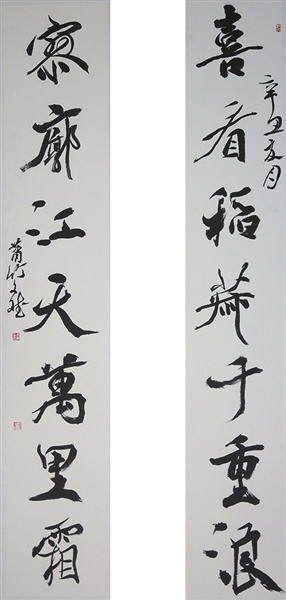 喜看稻菽千重浪
辛丑夏月
寥廓江天萬里霜